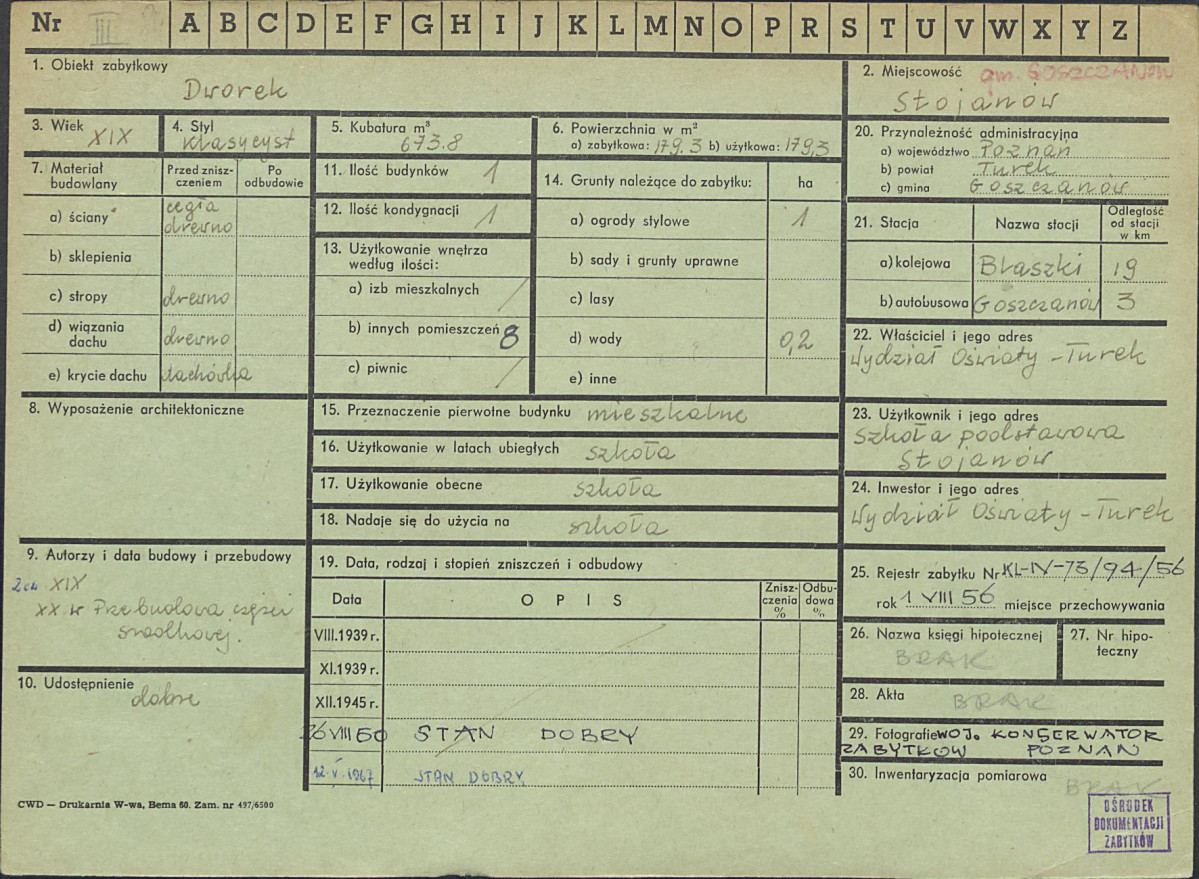 Nr III A B C D E F G H I J K L M N O P R S T U V W X Y Z
1. Obiekt zabytkowy
Dworek
2. Miejscowość gm. GOSZCZANÓW
Stojanów
3. Wiek XIX
4. Styl klasycyst
5. Kubatura m³ 673.8
6. Powierzchnia w m²
a) zabytkowa: 179.3 b) użytkowa: 179,3
7. Materiał budowlany
Przed zniszczeniem
Po odbudowie
a) ściany cegła drewno
b) sklepienia
c) stropy drewno
d) wiązania dachu drewno
e) krycie dachu dachówka
11. Ilość budynków 1
12. Ilość kondygnacji 1
13. Użytkowanie wnętrza
według ilości:
a) izb mieszkalnych /
b) innych pomieszczeń 8
c) piwnic /
14. Grunty należące do zabytku: ha
a) ogrody stylowe 1
b) sady i grunty uprawne
c) lasy
d) wody 0,2
e) inne
20. Przynależność administracyjna
a) województwo Poznań
b) powiat Turek
c) gmina Goszczanów
21. Stacja
Nazwa stacji
Odległość od stacji w km
a) kolejowa Błaszki 19
b) autobusowa Goszczanów 3
22. Właściciel i jego adres
Wydział Oświaty - Turek
8. Wyposażenie architektoniczne
15. Przeznaczenie pierwotne budynku mieszkalne
16. Użytkowanie w latach ubiegłych szkoła
17. Użytkowanie obecne szkoła
18. Nadaje się do użycia na szkoła
23. Użytkownik i jego adres
Szkoła podstawowa
Stojanów
24. Inwestor i jego adres
Wydział Oświaty - Turek
9. Autorzy i data budowy i przebudowy
XIX
XX w Przebudowa części
środkowej.
10. Udostępnienie
dobre
19. Data, rodzaj i stopień zniszczeń i odbudowy
Data
OPIS
Zniszczenia %
Odbudowa %
VIII.1939 r.
XI.1939 r.
XII.1945 r.
26 VIII 60 STAN DOBRY
12.V.1967 STAN DOBRY
25. Rejestr zabytku Nr KL-IV-73/94/56
rok 1 VIII 56 miejsce przechowywania
26. Nazwa księgi hipotecznej
BRAK
27. Nr hipoteczny
28. Akta BRAK
29. Fotografie WOJ. KONSERWATOR
ZABYTKÓW POZNAŃ
30. Inwentaryzacja pomiarowa
BRAK
CWD — Drukarnia W-wa, Bema 60. Zam. nr 497/6500
OŚRODEK
DOKUMENTACJI
ZABYTKÓW